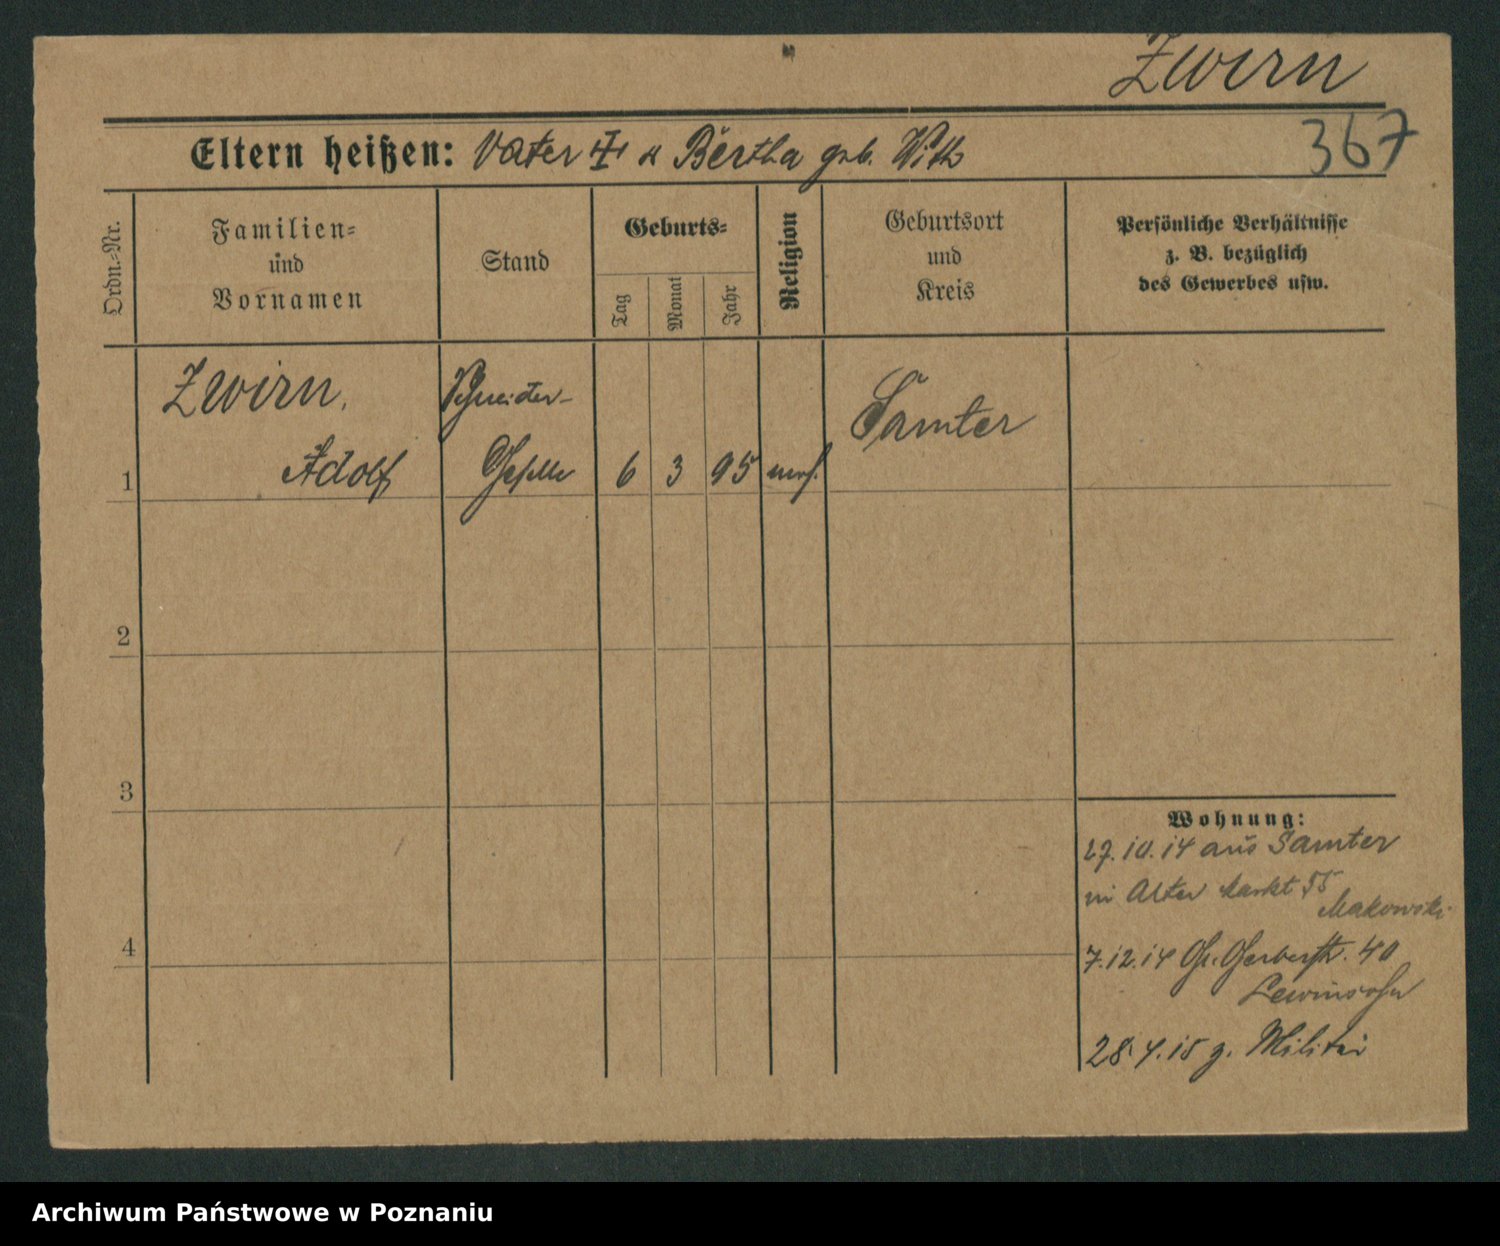 Zwirn
367
Eltern heißen: Vater † u Bertha geb. With
Ordn.-Nr.
Familien-
und
Vornamen
Stand
Geburts-
Tag
Monat
Jahr
Religion
Geburtsort
und
Kreis
Persönliche Verhältnisse
z. B. bezüglich
des Gewerbes usw.
1
Zwirn,
Adolf
Schneider-
Geselle
6
3
95
mos.
Samter
2
3
4
Wohnung:
27.10.14 aus Samter
in Alter Markt 55
Makowski
7.12.14 Gr. Gerberstr. 40
Lewinsohn
28.4.15 z. Militär
Archiwum Państwowe w Poznaniu